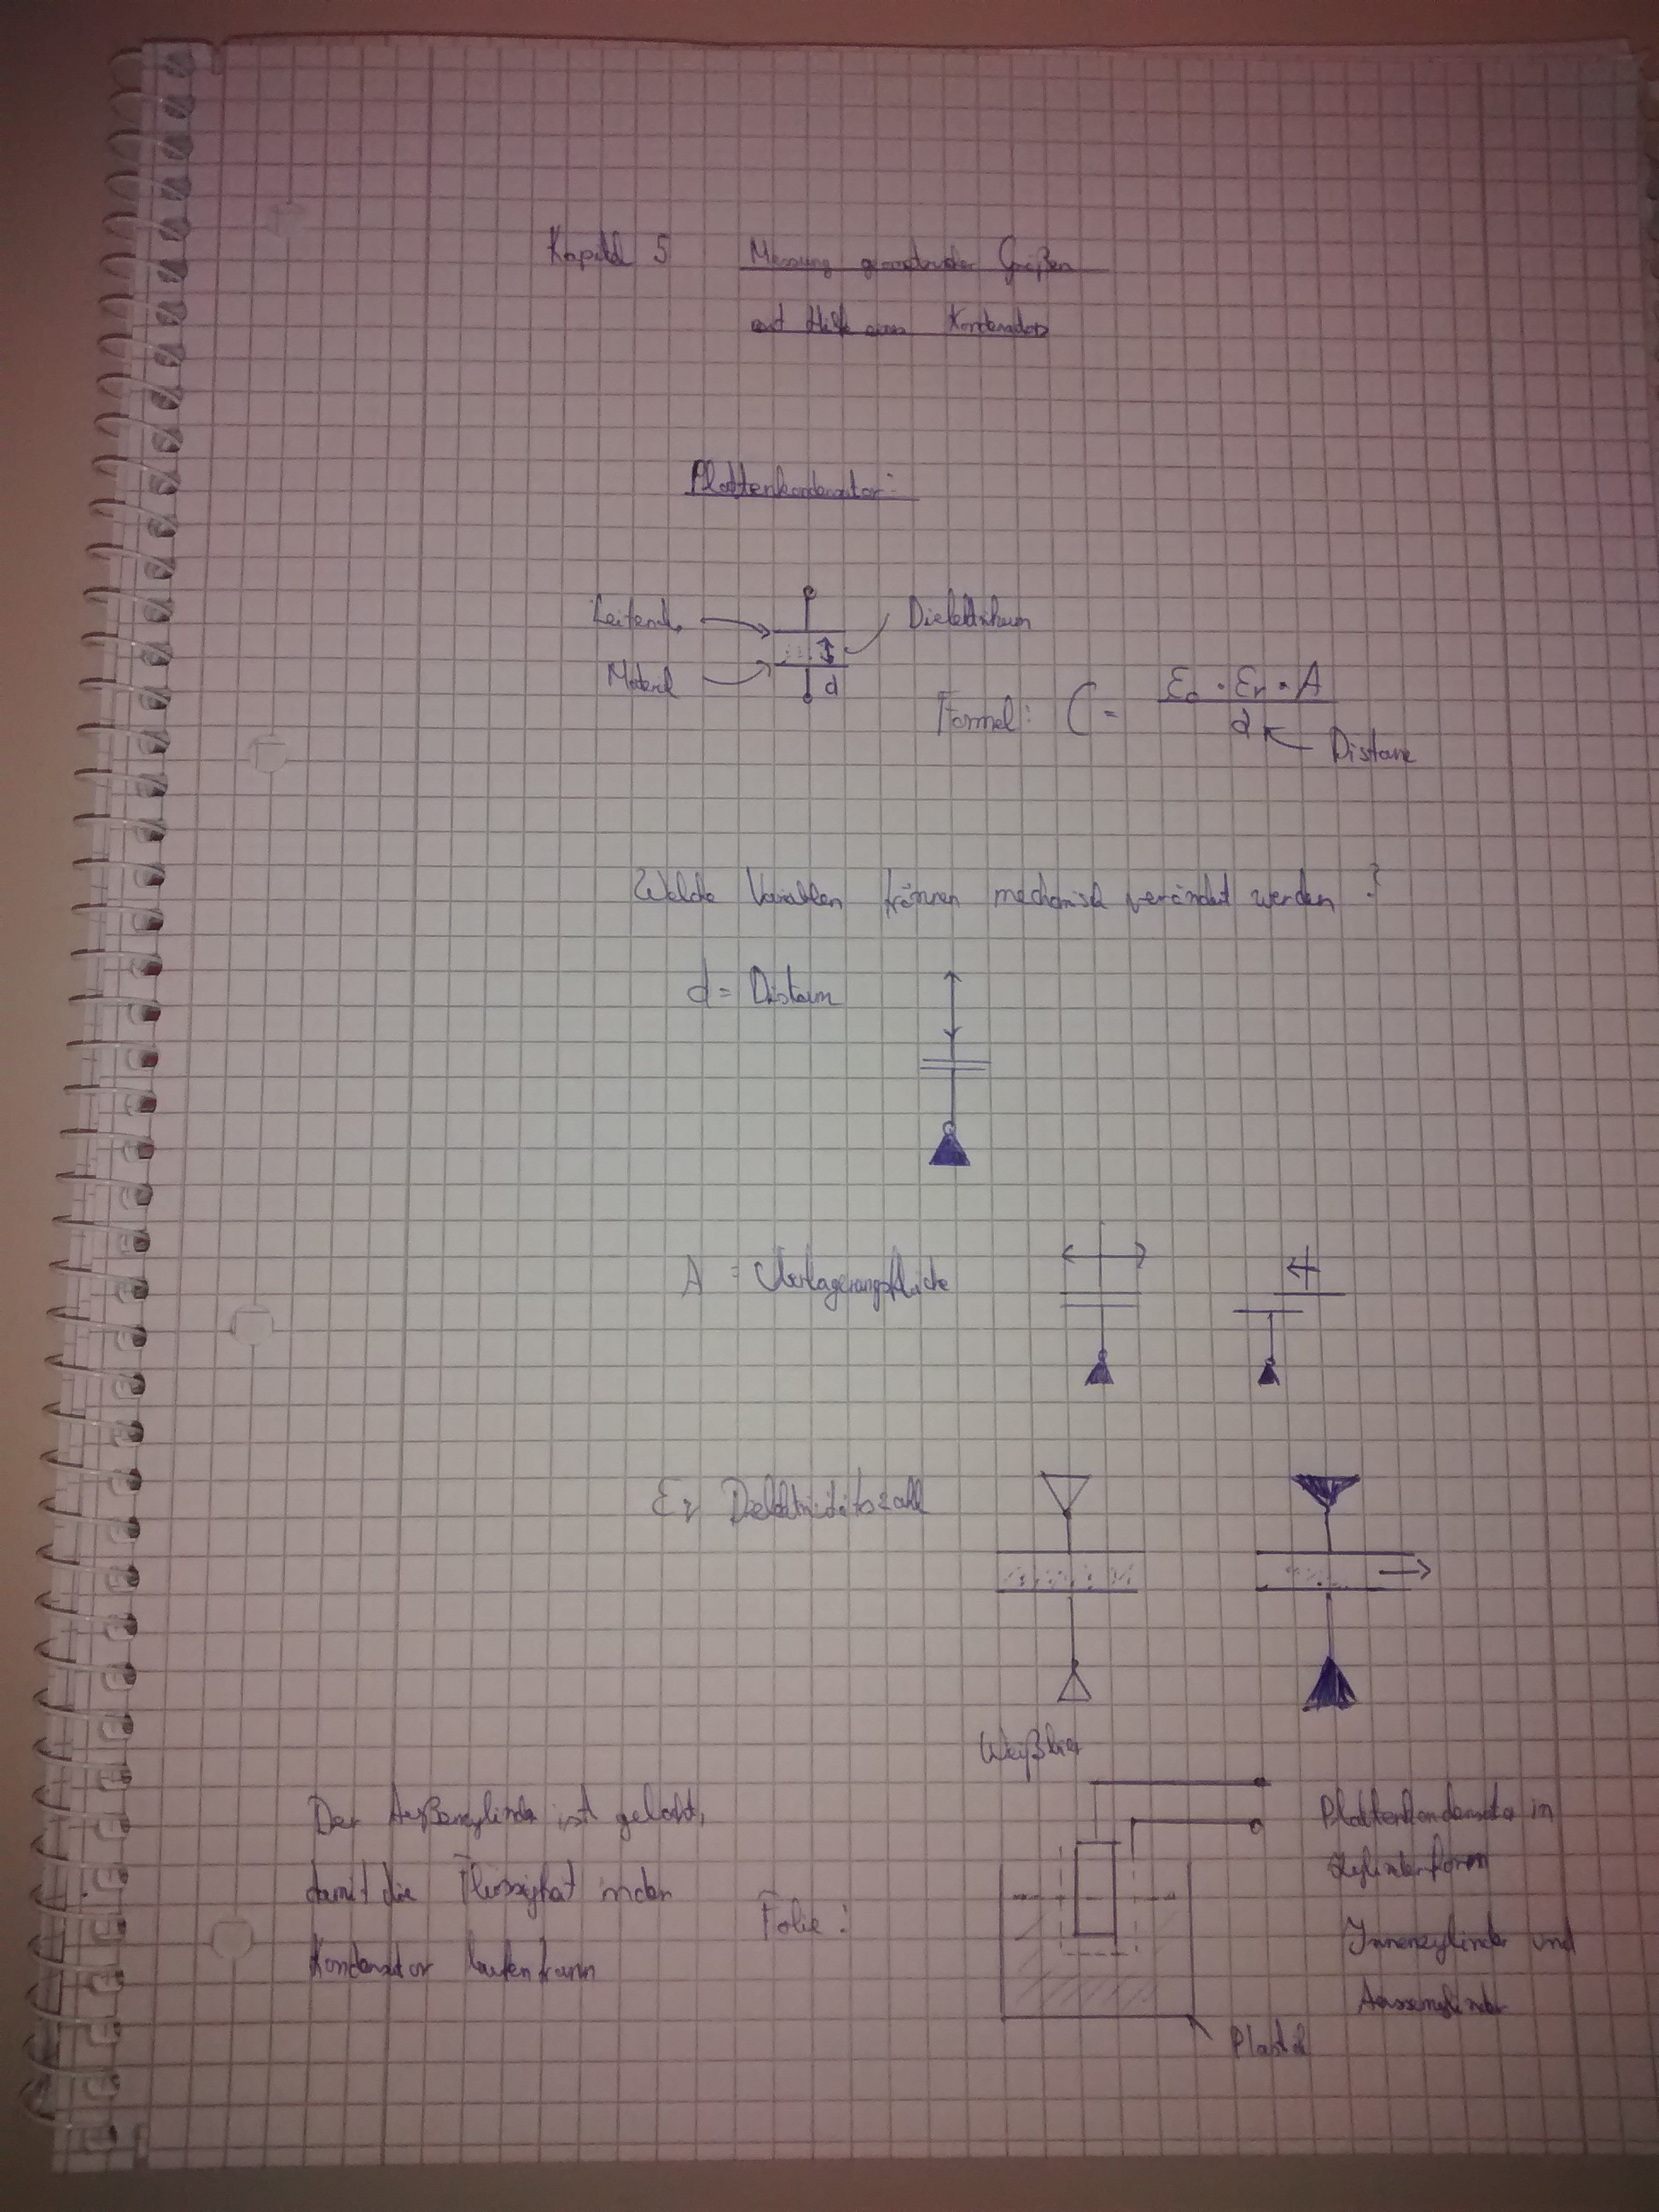 Kapitel 5 Messung geometrischer Größen
mit Hilfe eines Kondensators
Plattenkondensator:
Leitende
Dielektrikum
Material
d
Formel: C = ε₀ · εᵣ · A / d
Distanz
Welche Variablen können mechanisch verändert werden?
d = Distanz
A = Überlagerungsfläche
εᵣ Dielektrizitätszahl
Weißbier
Der Außenzylinder ist gelocht,
damit die Flüssigkeit in den
Kondensator laufen kann
Folie:
Plattenkondensator in
Zylinderform
Innenzylinder und
Aussenzylinder
Plastik